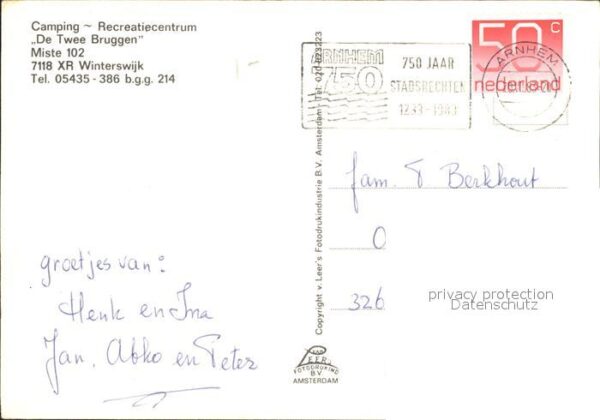 Camping ~ Recreatiecentrum
„De Twee Bruggen"
Miste 102
7118 XR Winterswijk
Tel. 05435 - 386 b.g.g. 214
ARNHEM
750
750 JAAR
STADSRECHTEN
1233-1983
50 c
nederland
ARNHEM
Copyright v. Leer's Fotodrukindustrie B.V. Amsterdam - Tel. 020-823223
fam. T Berkhout
O
326
privacy protection
Datenschutz
groetjes van:
Henk en Ina
Jan, Abko en Peter
VAN
LEER
FOTODRUKIND
B.V.
AMSTERDAM